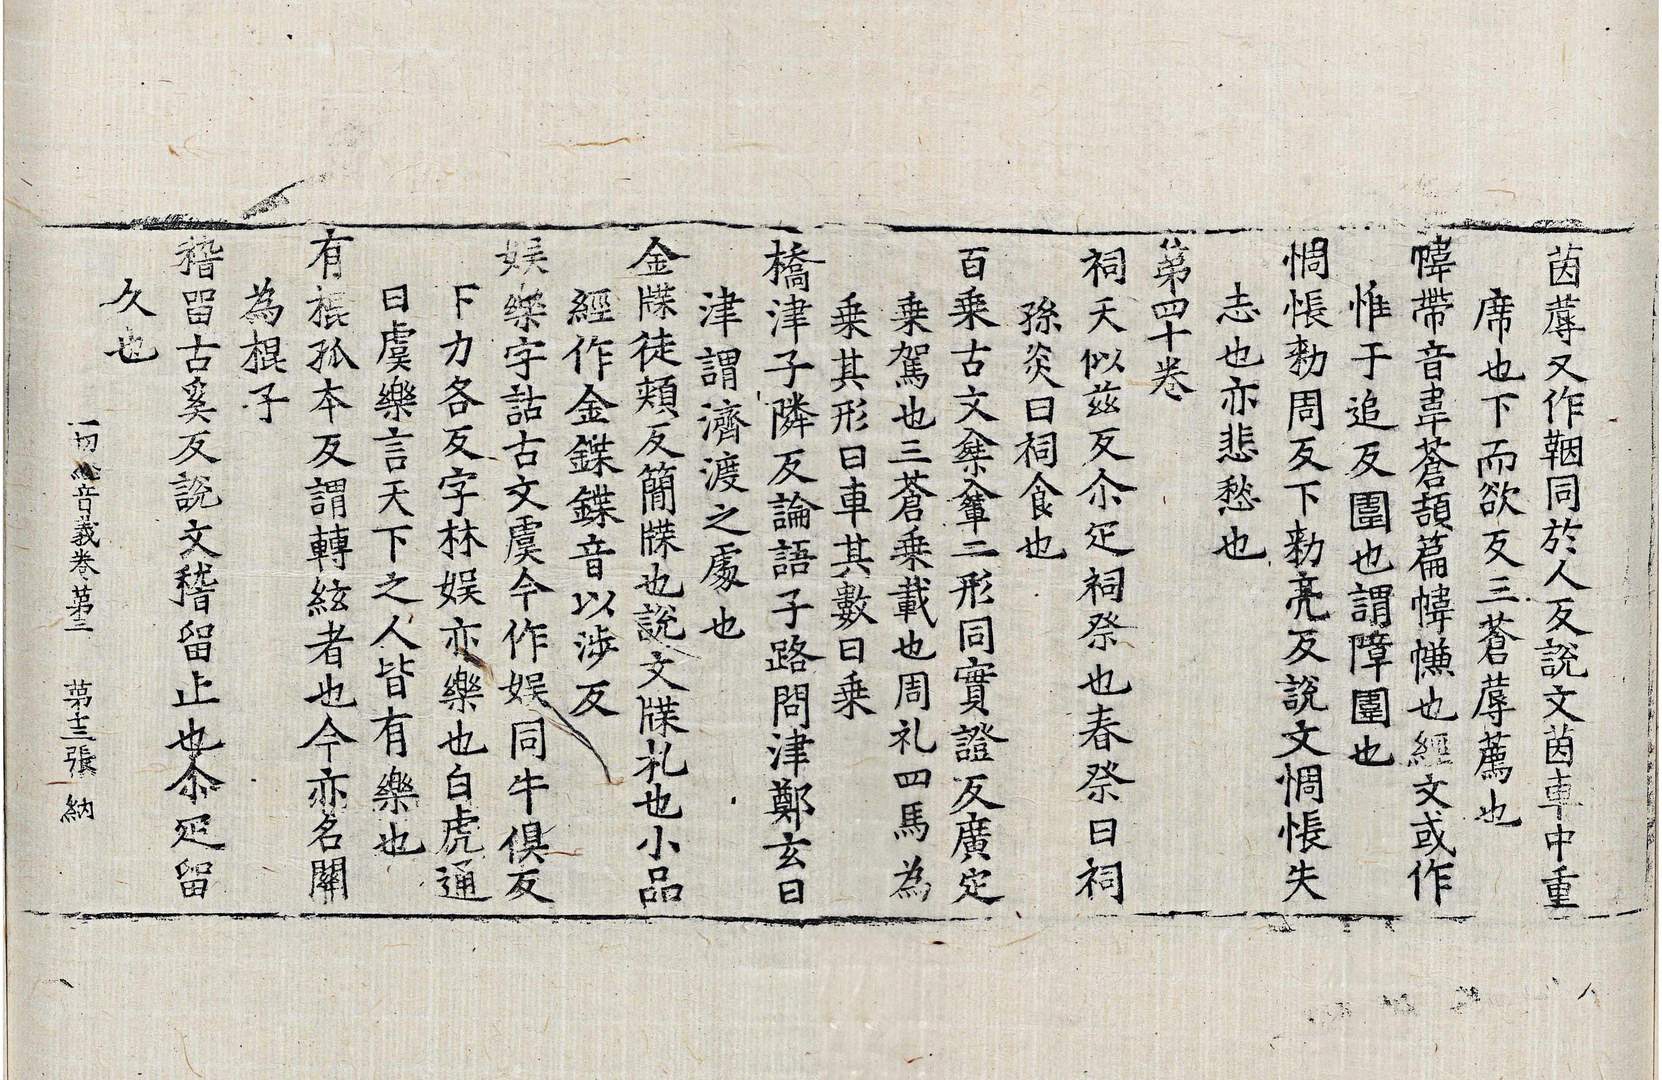 茵蓐又作鞇同於人反說文茵車中重
席也下而欲反三蒼蓐薦也
幃帶音韋蒼頡篇幃㡘也經文或作
惟于追反圍也謂障圍也
惆悵勑周反下勑亮反說文惆悵失
志也亦悲愁也
第四十卷
祠天似兹反尒疋祠祭也春祭曰祠
孫炎曰祠食也
百乗古文椉𨏖二形同實證反廣疋
乗駕也三蒼乗載也周礼四馬為
乗其形曰車其數曰乗
橋津子隣反論語子路問津鄭玄曰
津謂濟渡之處也
金牒徒頰反簡牒也說文牒札也小品
經作金鍱鍱音以涉反
娱樂字詁古文虞今作娱同牛俱反
下力各反字林娱亦樂也白虎通
曰虞樂言天下之人皆有樂也
有棖孤本反謂轉絃者也今亦名關
為棍子
稽留古奚反說文稽留止也尒疋留
久也
一切經音義卷第三 第十三張 納